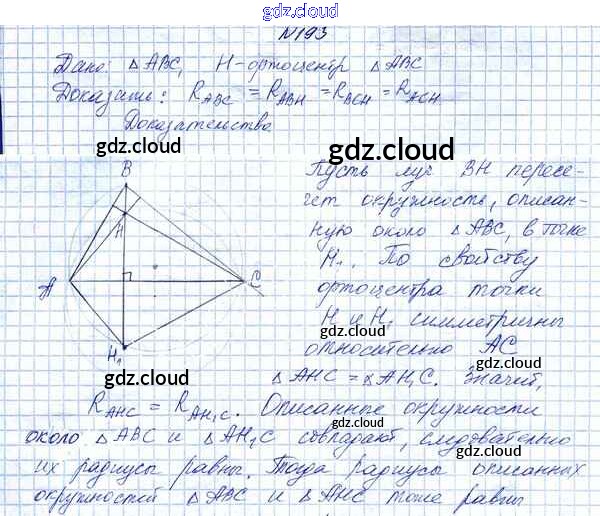 gdz.cloud
N193
Дано: △ABC, H-ортоцентр △ABC
gdz.cloud
Доказать: R_ABC = R_ABH = R_BCH = R_ACH
gdz.cloud
Доказательство
gdz.cloud
gdz.cloud
B
H
A
C
H₁
Пусть луч BH пересе-
кает окружность, описан-
gdz.cloud
ную около △ABC, в точке
H₁. По свойству
gdz.cloud
ортоцентра точки
gdz.cloud
H и H₁ симметричны
gdz.cloud
относительно AC
gdz.cloud
△AHC = △AH₁C. Значит,
gdz.cloud
R_AHC = R_AH₁C. Описанные окружности
gdz.cloud
около △ABC и △AH₁C совпадают, следовательно
gdz.cloud
их радиусы равны. Тогда радиусы описанных
gdz.cloud
окружностей △ABC и △AHC тоже равны
gdz.cloud